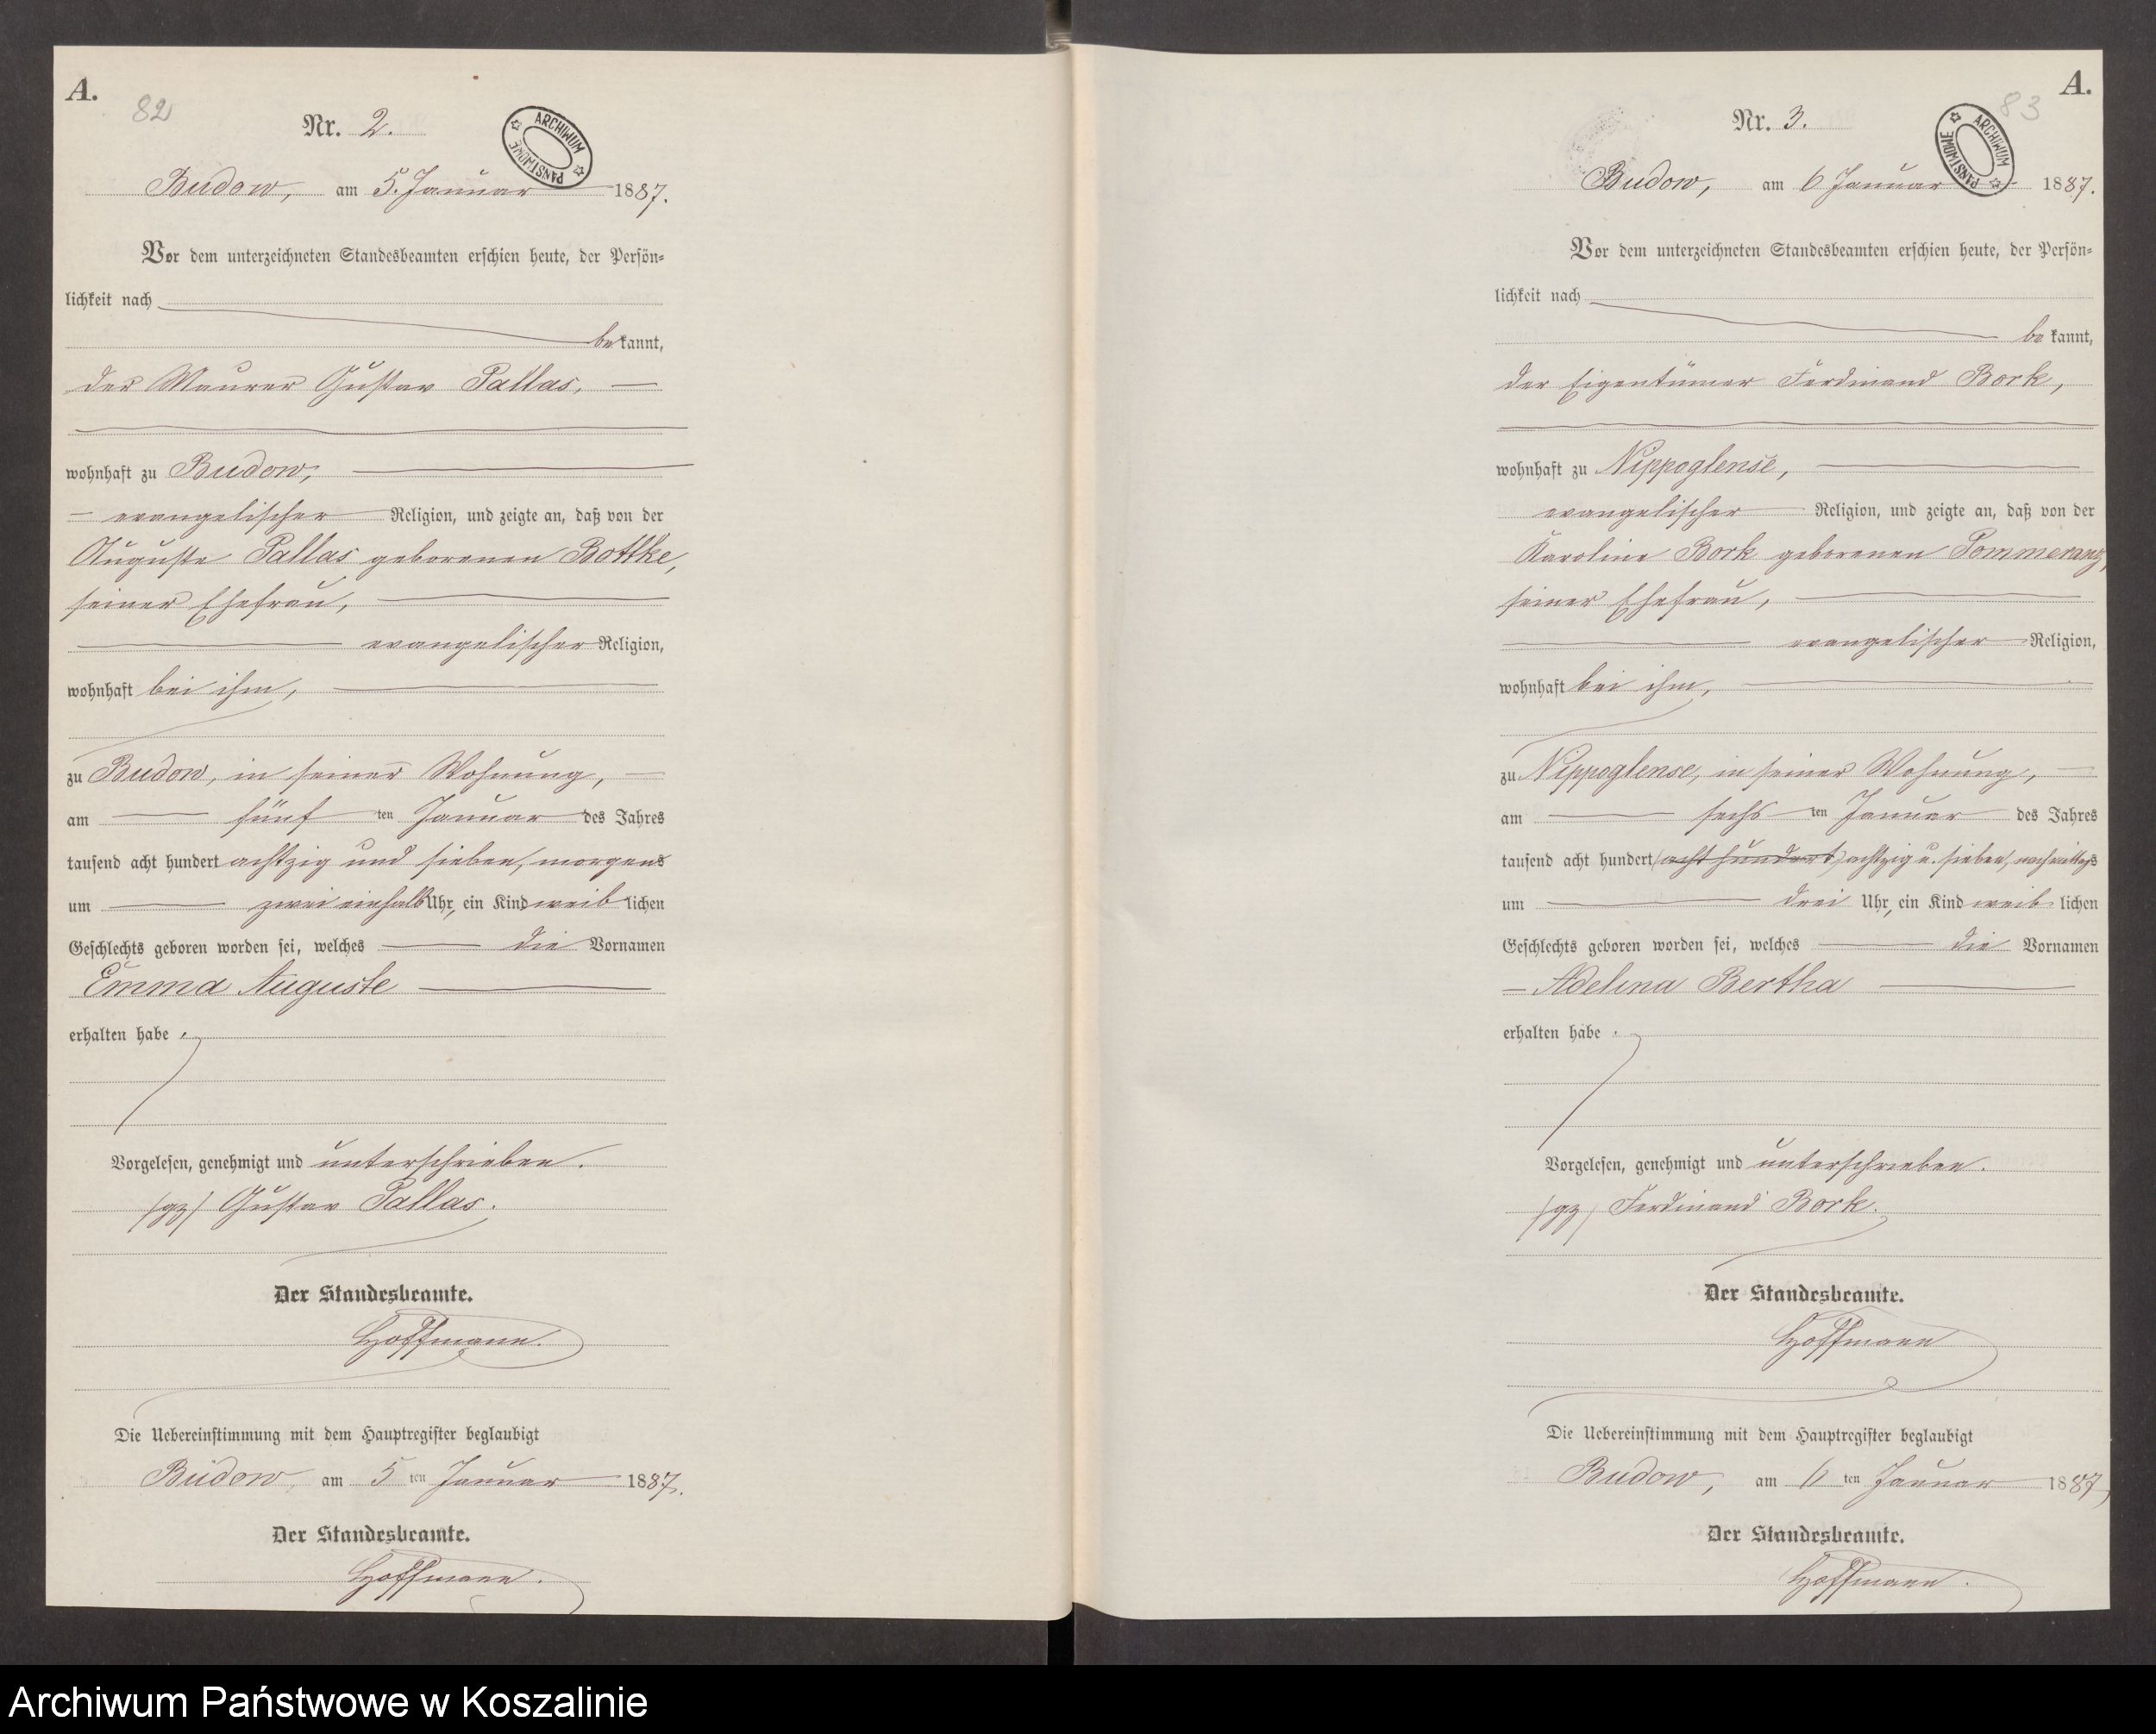 A.
82
Nr. 2.
ARCHIWUM PAŃSTWOWE
Budow, am 5. Januar 1887.
Vor dem unterzeichneten Standesbeamten erschien heute, der Persön-
lichkeit nach
bekannt,
der Maurer Gustav Pallas,
wohnhaft zu Budow,
evangelischer Religion, und zeigte an, daß von der
Auguste Pallas geborenen Bottke,
seiner Ehefrau,
evangelischer Religion,
wohnhaft bei ihm,
zu Budow, in seiner Wohnung,
am fünf ten Januar des Jahres
tausend acht hundert achtzig und sieben, morgens
um zwei einhalb Uhr, ein Kind weiblichen
Geschlechts geboren worden sei, welches die Vornamen
Emma Auguste
erhalten habe.
Vorgelesen, genehmigt und unterschrieben.
/gz/ Gustav Pallas.
Der Standesbeamte.
Hoffmann.
Die Uebereinstimmung mit dem Hauptregister beglaubigt
Budow, am 5 ten Januar 1887.
Der Standesbeamte.
Hoffmann.
A.
83
Nr. 3.
ARCHIWUM PAŃSTWOWE
Budow, am 6 Januar 1887.
Vor dem unterzeichneten Standesbeamten erschien heute, der Persön-
lichkeit nach
bekannt,
der Eigentümer Ferdinand Bork,
wohnhaft zu Nippoglense,
evangelischer Religion, und zeigte an, daß von der
Karoline Bork geborenen Pommerang,
seiner Ehefrau,
evangelischer Religion,
wohnhaft bei ihm,
zu Nippoglense, in seiner Wohnung,
am sechs ten Januar des Jahres
tausend acht hundert (acht hundert) achtzig u. sieben, nachmittags
um drei Uhr, ein Kind weiblichen
Geschlechts geboren worden sei, welches die Vornamen
Adelina Bertha
erhalten habe.
Vorgelesen, genehmigt und unterschrieben.
/gz/ Ferdinand Bork.
Der Standesbeamte.
Hoffmann
Die Uebereinstimmung mit dem Hauptregister beglaubigt
Budow, am 6 ten Januar 1887,
Der Standesbeamte.
Hoffmann.
Archiwum Państwowe w Koszalinie